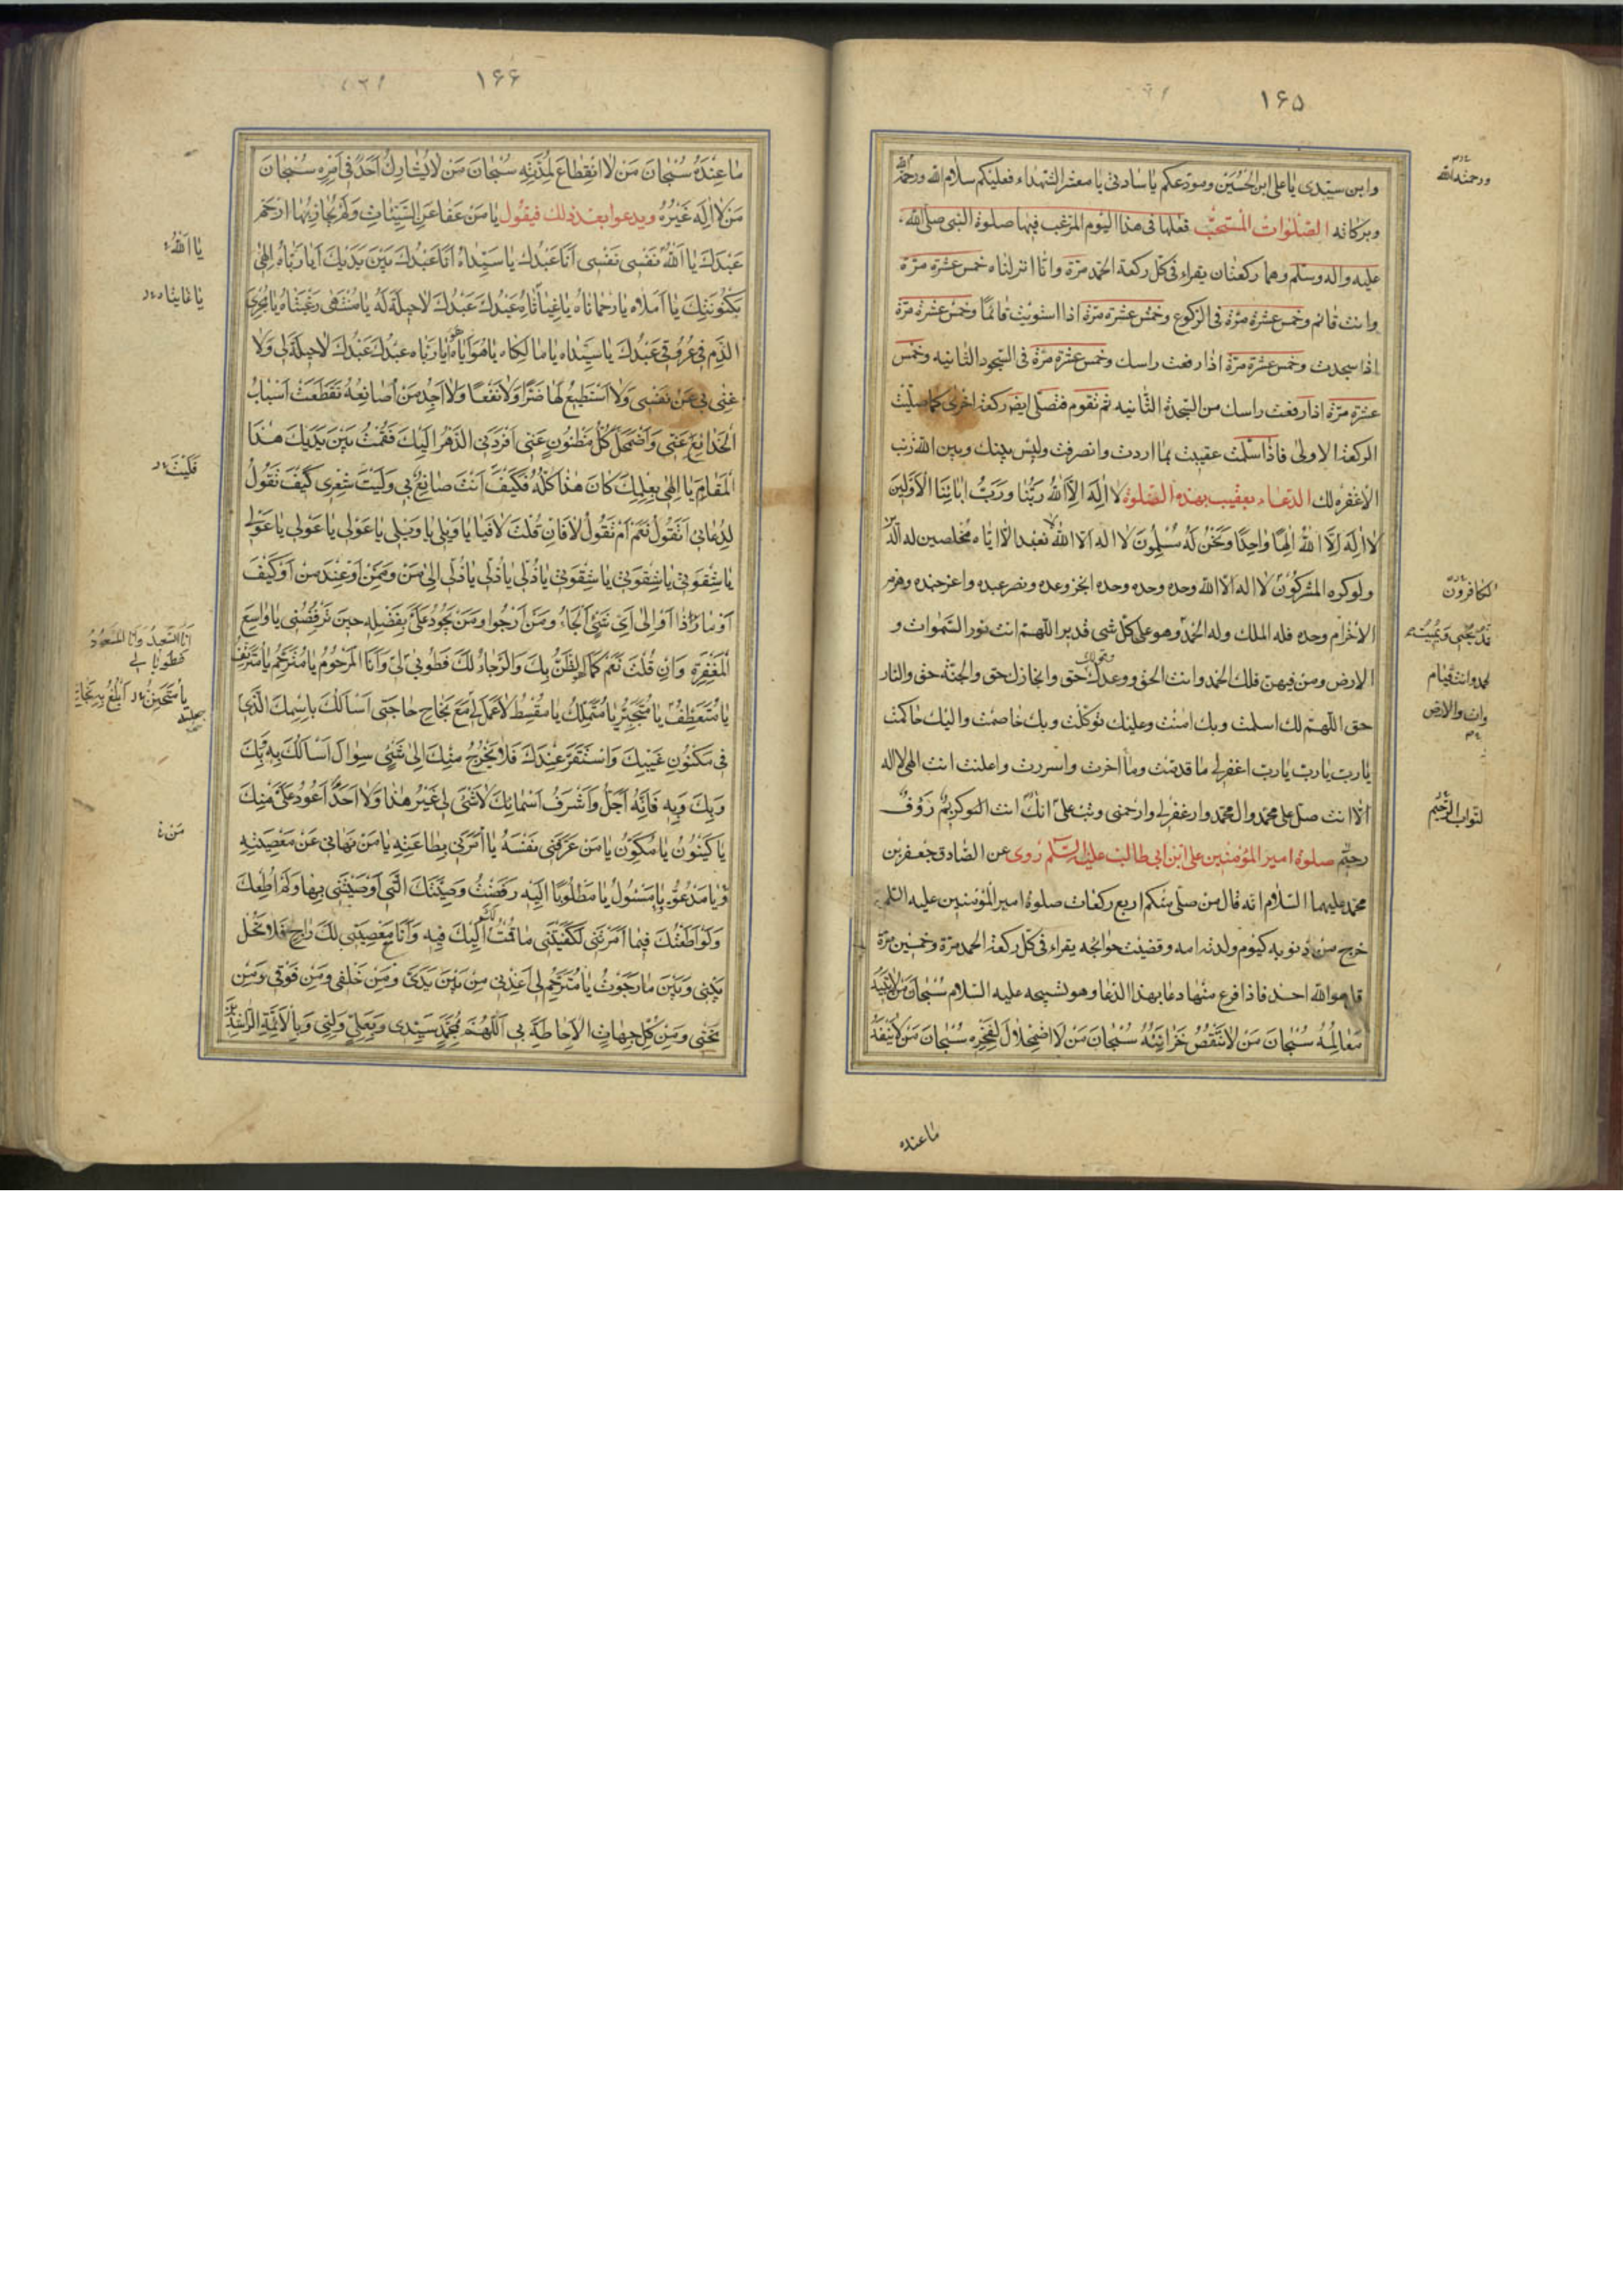 ١٦٥
وابن سيدى يا على ابن الحسين ومودعكم يا ساداتى يا معشر الشهداء فعليكم سلام الله ورحمة الله
وبركاته الصلوات المستحب فعلها فى هذا اليوم المرغب فيها صلوة النبى صلى الله
عليه واله وسلم وهما ركعتان يقراء فى كل ركعة الحمد مرة وانا انزلناه خمس عشرة مرة
وانت قائم وخمس عشرة مرة فى الركوع وخمس عشرة مرة اذا استويت قائما وخمس عشرة مرة
اذا سجدت وخمس عشرة مرة اذا رفعت راسك وخمس عشرة مرة فى السجود الثانيه وخمس
عشرة مرة اذا رفعت راسك من السجدة الثانيه ثم تقوم فتصلى ايضا ركعة اخرى كما صليت
الركعة الاولى فاذا سلمت عقبت بما اردت وانصرفت وليس بينك وبين الله ذنب
الا غفره لك الدعاء بعقيب بهذه الصلوة لا اله الا الله ربنا ورب ابائنا الاولين
لا اله الا الله الها واحدا ونحن له مسلمون لا اله الا الله لا نعبد الا اياه مخلصين له الدين
ولو كره المشركون لا اله الا الله وحده وحده وحده انجز وعده ونصر عبده واعز جنده وهزم
الاحزام وحده فله الملك وله الحمد وهو على كل شى قدير اللهم انت نور السموات و
الارض ومن فيهن فلك الحمد وانت الحق ووعدك حق وقولك حق وانجازك حق والجنة حق والنار
حق اللهم لك اسلمت وبك امنت وعليك توكلت وبك خاصمت واليك حاكمت
يا رب يا رب يا رب اغفر لى ما قدمت وما اخرت واسررت واعلنت انت الهى لا اله
الا انت صل على محمد وال محمد واغفر لى وارحمنى وتب على انك انت كريم رؤف
رحيم صلوة امير المؤمنين على ابن ابى طالب عليه السلم روى عن الصادق جعفر بن
محمد عليهما السلام انه قال من صلى منكم اربع ركعات صلوة امير المؤمنين عليه السلم
خرج من ذنوبه كيوم ولدته امه وقضيت حوائجه يقراء فى كل ركعة الحمد مرة وخمسين مرة
قل هو الله احد فاذا فرغ منها دعا بهذا الدعا وهو تسبيحه عليه السلام سبحان من لا تبيد
معالمه سبحان من لا تنقص خزائنه سبحان من لا اضمحلال لفخره سبحان من لا ينفد
ما عنده
ورحمة الله
الكافرون
يحيى ويميت
الحمد وانت قيام
السموات والارض
التواب الرحيم
١٦٦
ما عنده سبحان من لا انقطاع لمدته سبحان من لا يشارك احدا فى امره سبحان
من لا اله غيره ويدعوا بعد ذلك فيقول يا من عفا عن السيئات ولم يجاز بها ارحم
عبدك يا الله نفسى نفسى انا عبدك يا سيداه انا عبدك بين يديك ايا رباه الهى
بكنونتك يا املاه يا رحماناه يا غياثاه عبدك عبدك لا حيلة له يا منتهى رغبتاه يا مجرى
الدم فى عروقى عبدك يا سيداه يا مالكاه يا هو ايا هو يا رباه عبدك عبدك لا حيلة لى ولا
غنى بى عن نفسى ولا استطيع لها ضرا ولا نفعا ولا اجد من اصانعه تقطعت اسباب
الخدائع عنى واضمحل كل مظنون عنى افردنى الدهر اليك فقمت بين يديك هذا
المقام يا الهى بعلمك كان هذا كله فكيف انت صانع بى وليت شعرى كيف تقول
لدعائى اتقول نعم ام تقول لا فان قلت لا فيا يا ويلى يا ويلى يا عولى يا عولى يا عولى
يا شقوتى يا شقوتى يا شقوتى يا ذلى يا ذلى يا ذلى الى من وممن او عند من او كيف
او ما ذا او الى اى شئ الجاء ومن ارجوا ومن يجود على بفضله حين ترفضنى يا واسع
المغفرة وان قلت نعم كما الظن بك والرجاء لك فطوبى لى وانا المرحوم يا مترحم يا مترئف
يا متعطف يا متجبر يا متملك يا مقسط لا عمل لى مع نجاح حاجتى اسالك باسمك الذى
فى مكنون غيبك واستقر عندك فلا يخرج منك الى شئ سواك اسالك به بك
وبك وبه فانه اجل واشرف اسمائك لا شئ لى غير هذا ولا احدا اعود على منك
يا كينون يا مكون يا من عرفنى نفسه يا امرنى بطاعته يا من نهانى عن معصيته
ويا مدعو يا مسئول يا مطلوبا اليه رفضت وصيتك التى اوصيتنى بها ولم اطعك
ولو اطعتك فيما امرتنى لكفيتنى ما قمت اليك فيه وانا مع معصيتى لك راج فلا تحل
بينى وبين ما رجوت يا مترحم لى اعذنى من بين يدى ومن خلفى ومن فوقى ومن
تحتى ومن كل جهات الاحاطة بى اللهم بمحمد سيدى وبعلى وليى وبالائمة الراشدين
يا الله
يا غايتاه
فليت
انا السعيد وانا المسعود
فطوبا لى
من